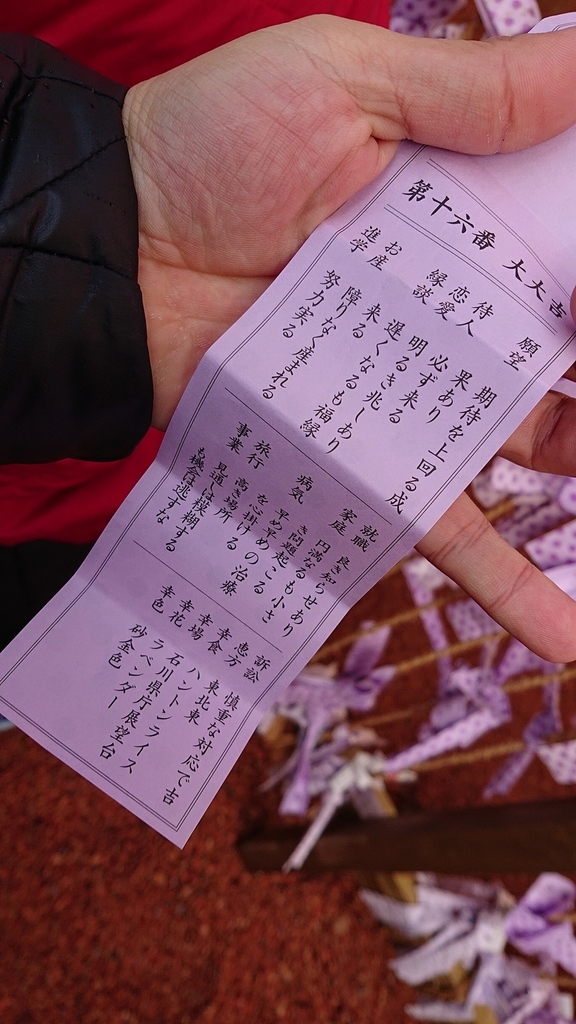 第十六番 大大吉
願望 期待を上回る成
果あり
待人 必ず来る
恋愛 明るき兆しあり
縁談 遅くなるも福縁
来る
お産 障りなく産まれる
進学 努力実る
就職 良き知らせあり
家庭 円満なるも小さ
き問題起こる
病気 早め早めの治療
を心掛ける
旅行 高き場所
事業 見通しは模糊する
も機会逃すな
訴訟 慎重な対応で吉
恵方 東北東
幸食 ハントンライス
幸場 石川県庁展望台
幸花 ラベンダー
幸色 砂金色